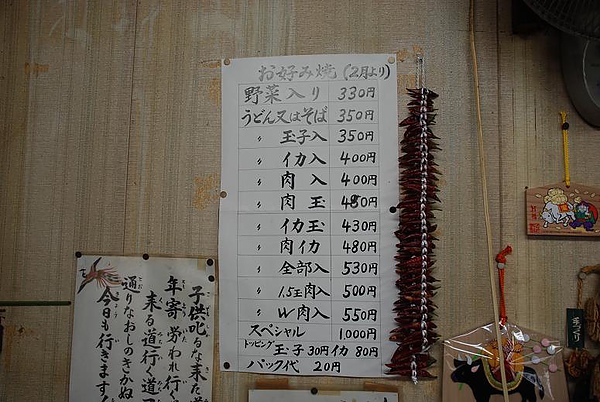 お好み焼 (2月より)
野菜入り 330円
うどん又はそば 350円
〃 玉子入 350円
〃 イカ入 400円
〃 肉入 400円
〃 肉玉 480円
〃 イカ玉 430円
〃 肉イカ 480円
〃 全部入 530円
〃 1.5玉肉入 500円
〃 W肉入 550円
スペシャル 1,000円
トッピング 玉子30円イカ80円
パック代 20円
子供叱るな来た道
年寄労われ行く
来る道行く道
通りなおしのきかぬ
今日も行きます
手づくり